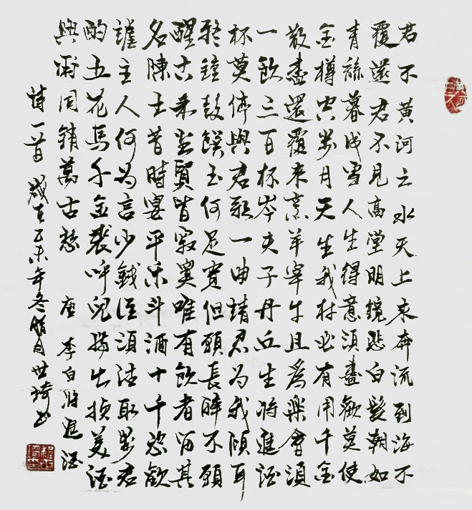 君不黄河之水天上來奔流到海不
覆還君不見高堂明鏡悲白髮朝如
青絲暮成雪人生得意須盡歡莫使
金樽空對月天生我材必有用千金
散盡還覆來烹羊宰牛且為樂會須
一飲三百杯岑夫子丹丘生將進酒
杯莫停與君歌一曲請君為我傾耳
聽鐘鼓饌玉何足貴但願長醉不願
醒古來聖賢皆寂寞唯有飲者留其
名陳王昔時宴平樂斗酒十千恣歡
謔主人何為言少錢徑須沽取對君
酌五花馬千金裘呼兒將出換美酒
與爾同銷萬古愁 唐 李白將進酒
詩一首 歲在乙未年冬臘月世琦書